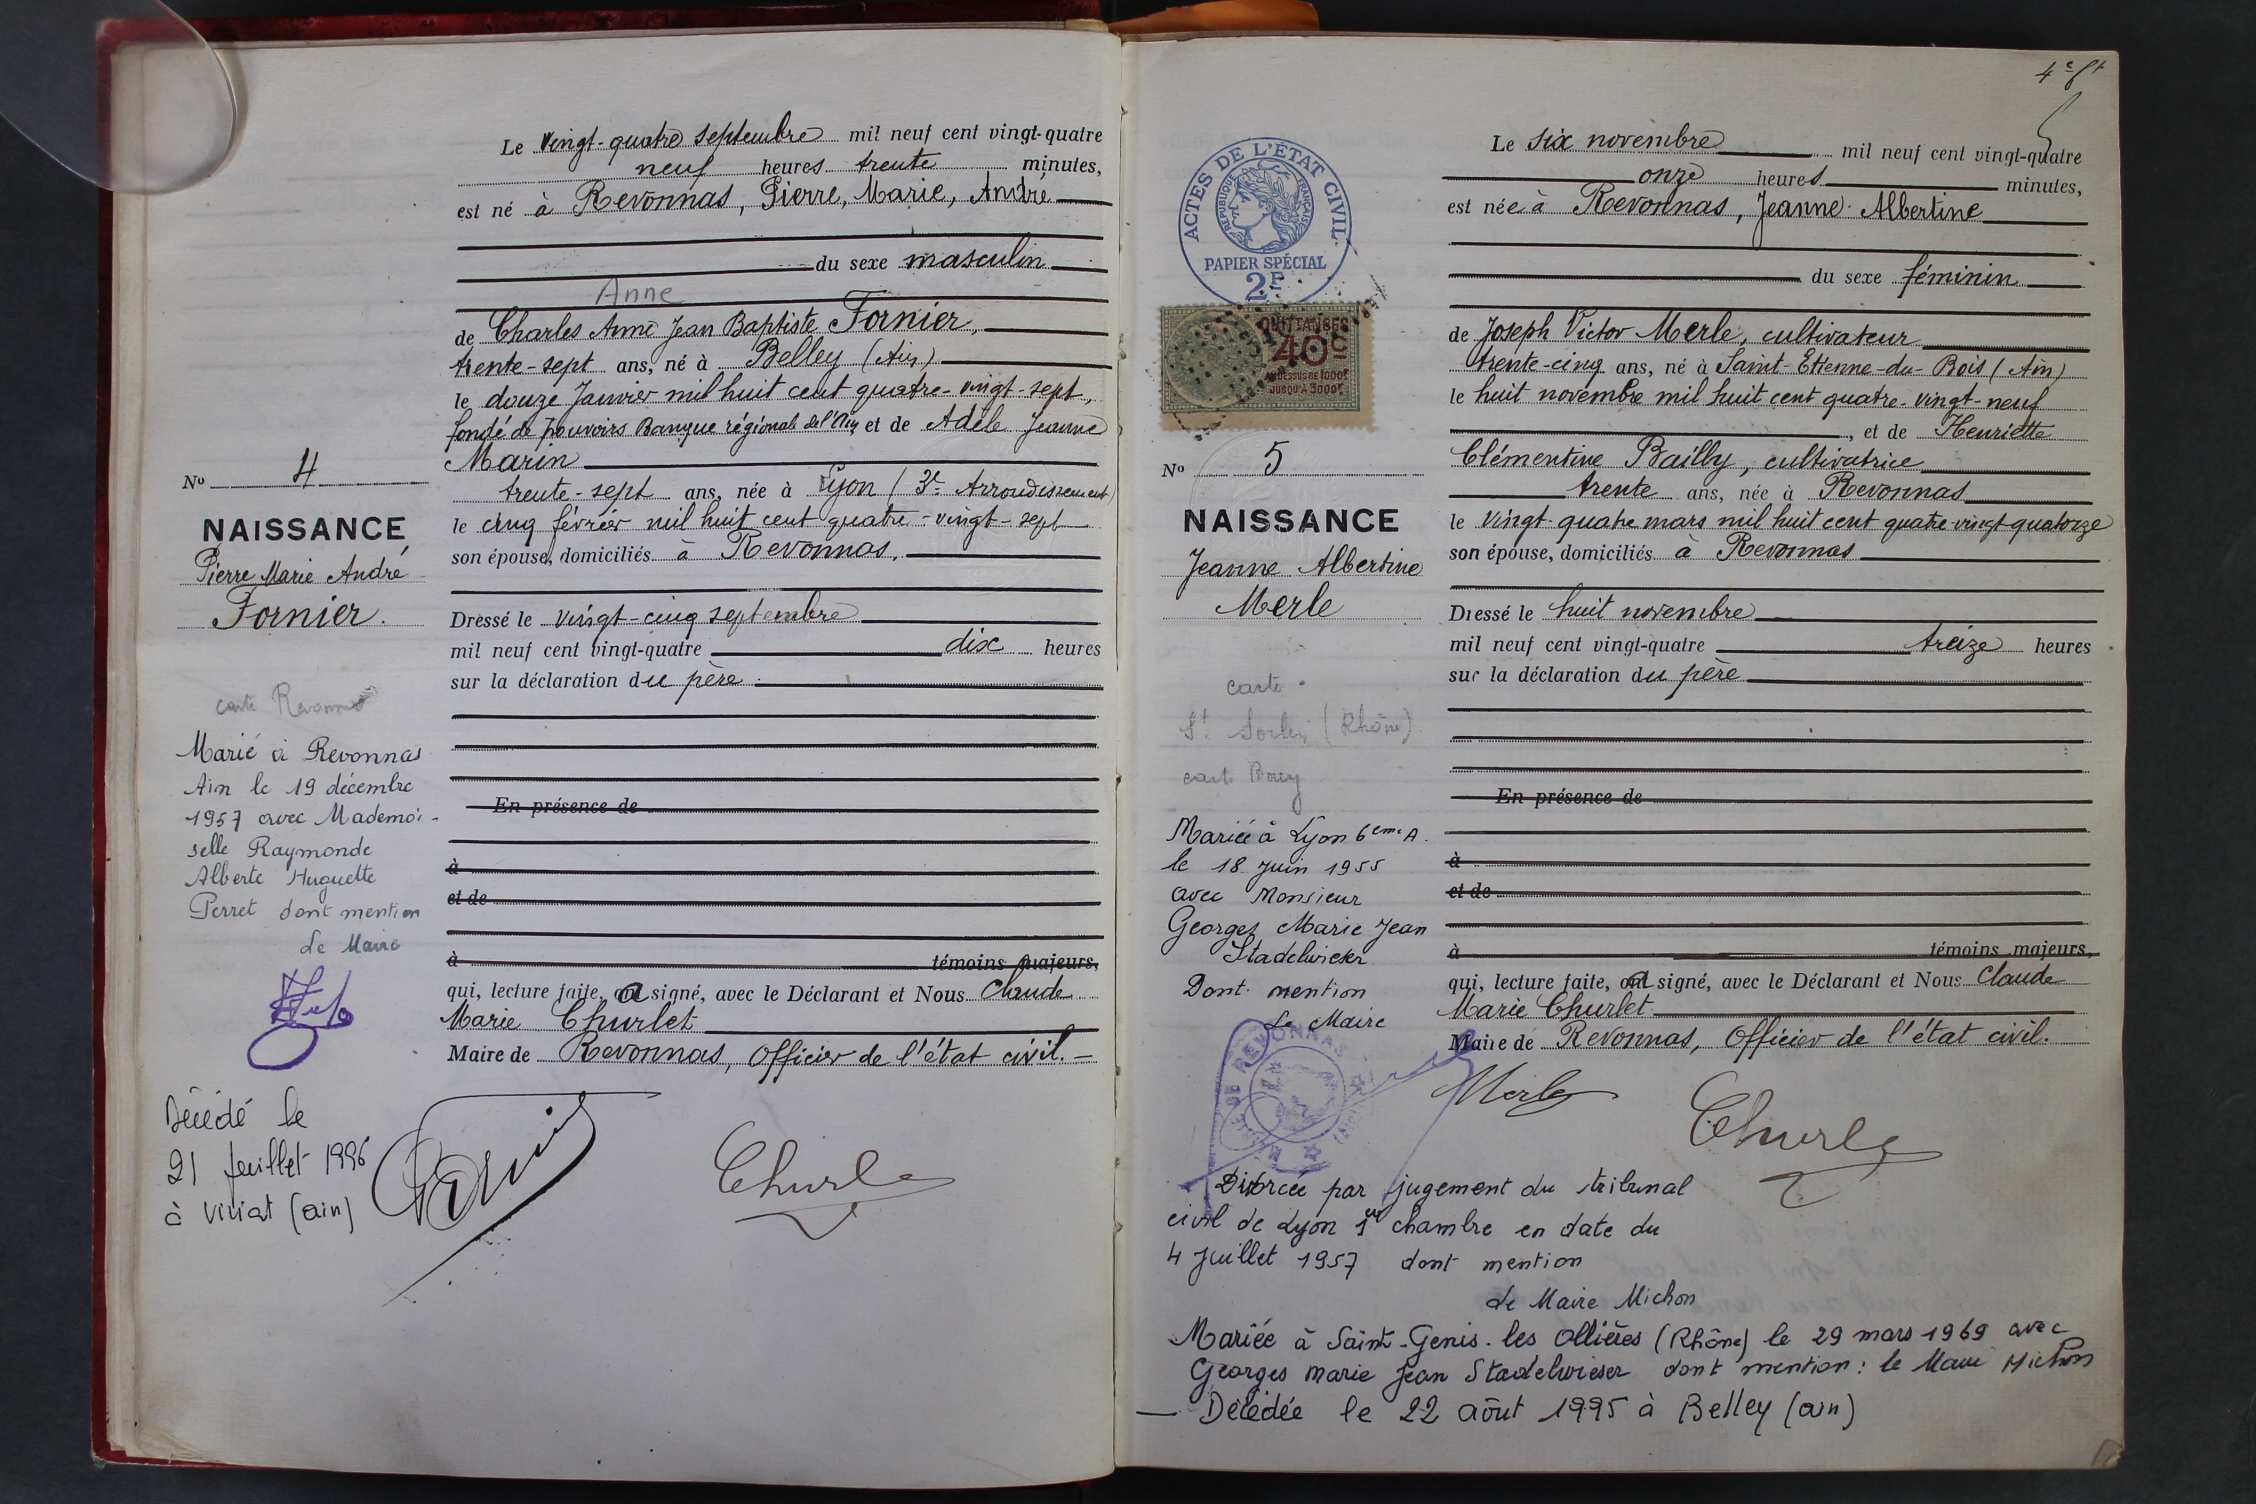 Le vingt-quatre septembre mil neuf cent vingt-quatre
neuf heures trente minutes,
est né à Revonnas, Pierre, Marie, André
du sexe masculin
Anne
de Charles Anne Jean Baptiste Fornier,
trente-sept ans, né à Belley (Ain)
le douze Janvier mil huit cent quatre-vingt-sept,
fondé de pouvoirs Banque régionale de l'Ain et de Adèle Jeanne
Marin
trente-sept ans, née à Lyon (3e Arrondissement)
le cinq février mil huit cent quatre-vingt-sept
son épouse, domiciliés à Revonnas.
Dressé le vingt-cinq septembre
mil neuf cent vingt-quatre dix heures
sur la déclaration du père.
En présence de
à
et de
à témoins majeurs,
qui, lecture faite, a signé, avec le Déclarant et Nous Claude
Marie Churlet
Maire de Revonnas, Officier de l'état civil.
Churlet
No 4
NAISSANCE
Pierre Marie André
Fornier.
carte Revonnas
Marié à Revonnas
Ain le 19 décembre
1957 avec Mademoi-
selle Raymonde
Alberte Huguette
Perret dont mention
Le Maire
Décédé le
21 juillet 1996
à Viriat (ain)
4e ft
Le six novembre mil neuf cent vingt-quatre
onze heures minutes,
est née à Revonnas, Jeanne Albertine
du sexe féminin
de Joseph Victor Merle, cultivateur
trente-cinq ans, né à Saint-Etienne-du-Bois (Ain)
le huit novembre mil huit cent quatre-vingt-neuf
, et de Henriette
Clémentine Bailly, cultivatrice
trente ans, née à Revonnas
le vingt-quatre mars mil huit cent quatre-vingt-quatorze
son épouse, domiciliés à Revonnas
Dressé le huit novembre
mil neuf cent vingt-quatre treize heures
sur la déclaration du père
En présence de
à
et de
à témoins majeurs,
qui, lecture faite, a signé, avec le Déclarant et Nous Claude
Marie Churlet
Maire de Revonnas, Officier de l'état civil.
Merle
Churlet
ACTES DE L'ÉTAT CIVIL
RÉPUBLIQUE FRANÇAISE
PAPIER SPÉCIAL
2F
QUITTANCES
40c
AU DESSUS DE 1000F
JUSQU'À 3000F
No 5
NAISSANCE
Jeanne Albertine
Merle
carte
St (Rhône)
carte Bourg
Mariée à Lyon 6ème A.
le 18 Juin 1955
avec Monsieur
Georges Marie Jean
Stadelwieser
Dont mention
Le Maire
REVONNAS
Divorcée par jugement du tribunal
civil de Lyon 1er chambre en date du
4 Juillet 1957 dont mention
Le Maire Michon
Mariée à Saint-Genis-les Ollières (Rhône) le 29 mars 1969 avec
Georges marie Jean Stadelwieser dont mention : le Maire Michon
— Décédée le 22 août 1995 à Belley (ain)